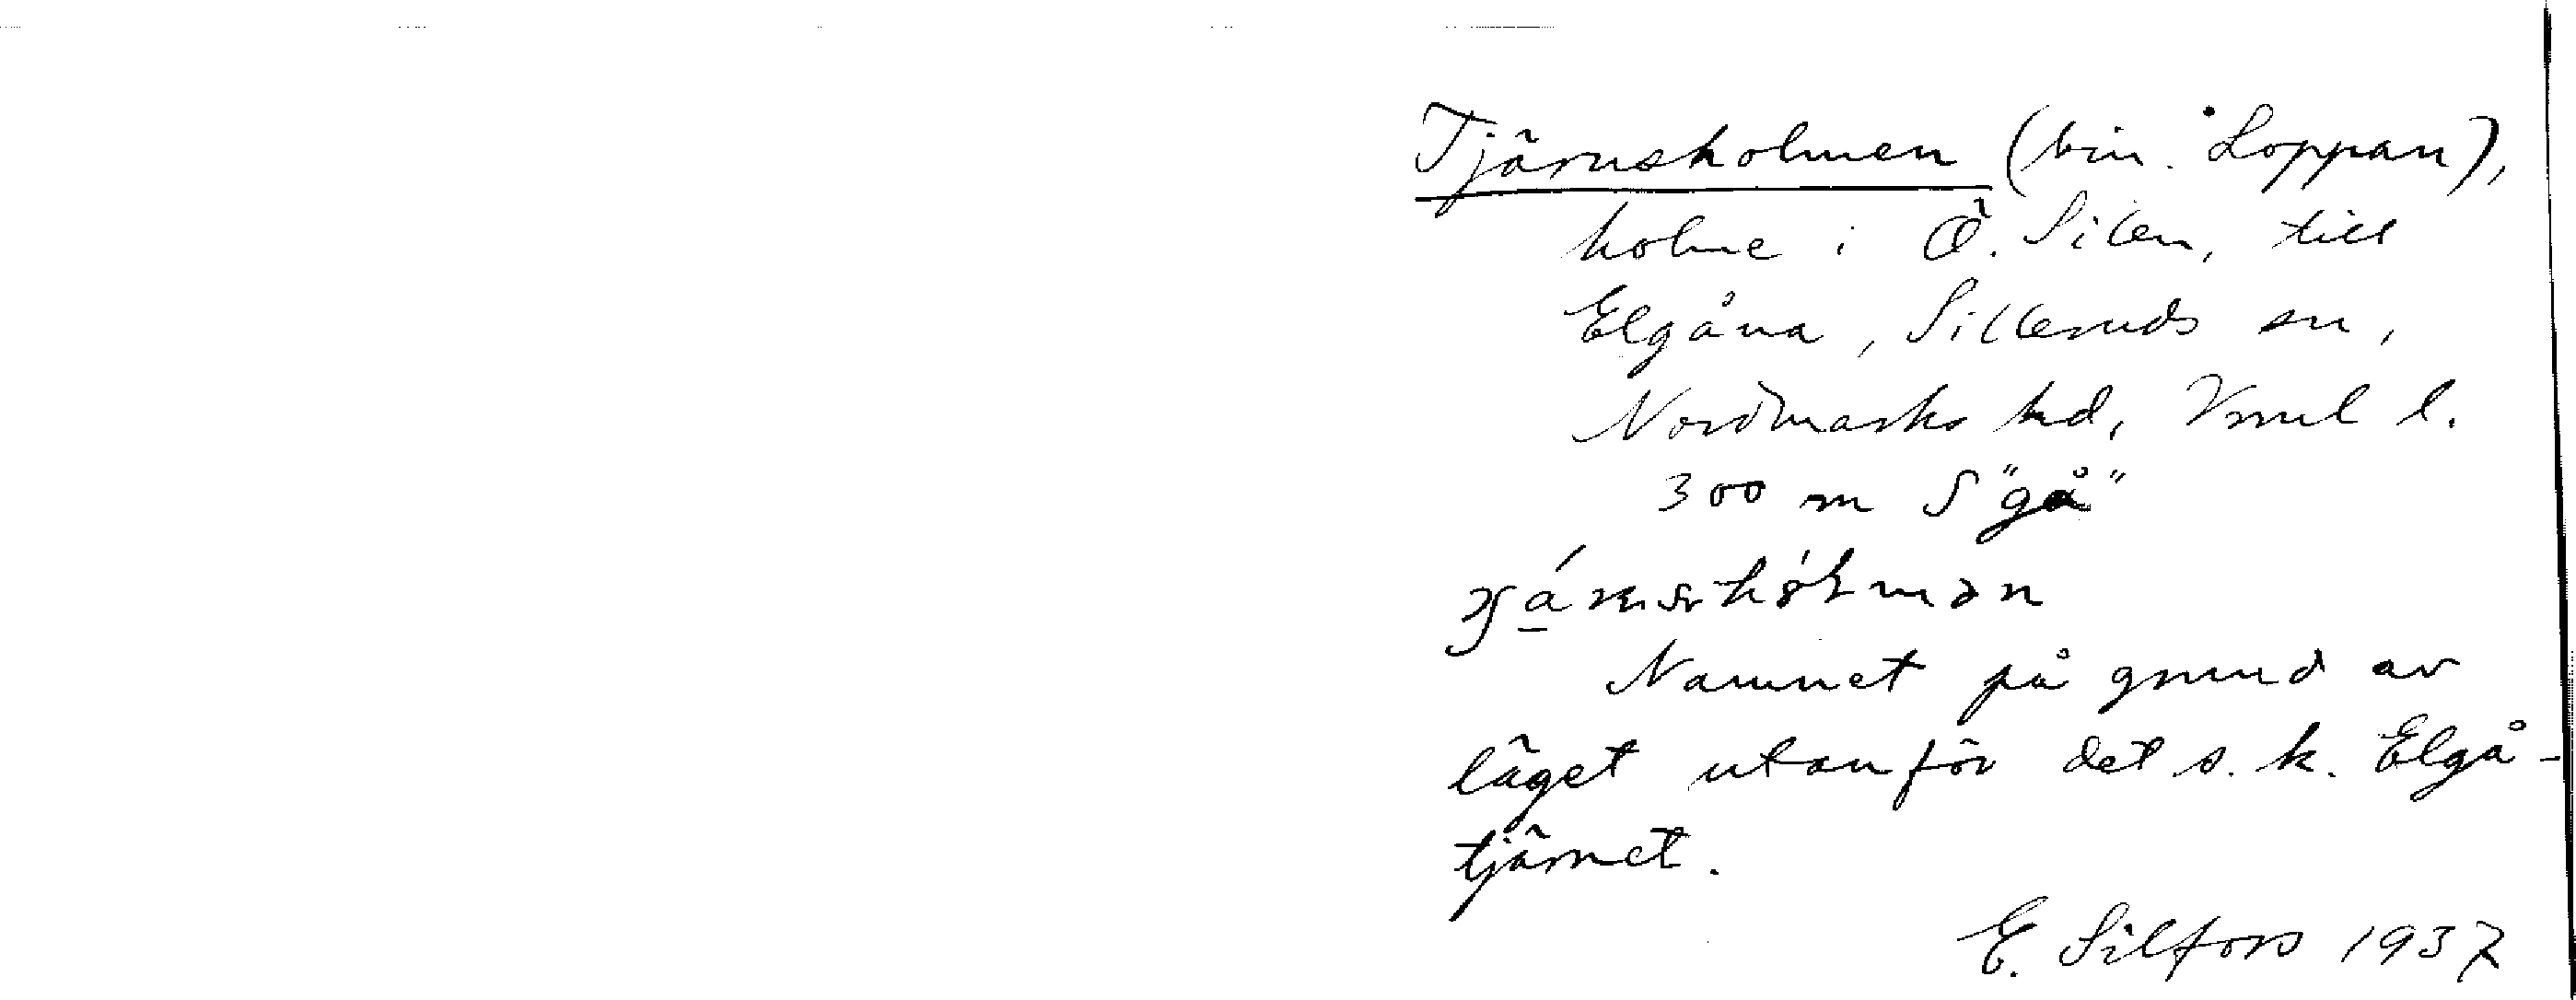 Tjärnsholmen (bin. Loppan),
holme i Ö. Silen, till
Elgåna, Silleruds sn,
Nordmarks hd, Vrml l.
300 m S "gå"
Namnet på grund av
läget utanför det s.k. Elgå-
tjärnet.
E. Silfors 1937